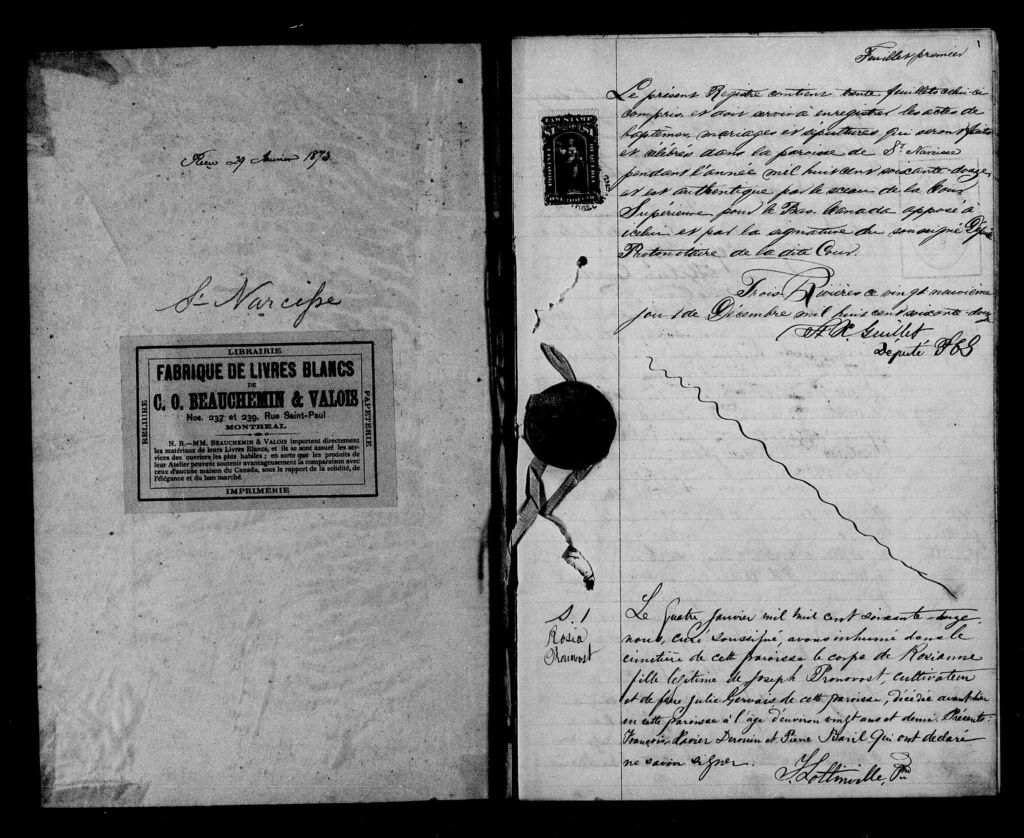 Reçu 29 Janvier 1873
St Narcisse
LIBRAIRIE
FABRIQUE DE LIVRES BLANCS
DE
C. O. BEAUCHEMIN & VALOIS
Nos. 237 et 239, Rue Saint-Paul
MONTREAL
N. B.—MM. BEAUCHEMIN & VALOIS importent directement
les matériaux de leurs Livres Blancs, et ils se sont assuré les ser-
vices des ouvriers les plus habiles; en sorte que les produits de
leur Atelier peuvent soutenir avantageusement la comparaison avec
ceux d'aucune maison du Canada, sous le rapport de la solidité, de
l'élégance et du bon marché.
RELIURE
PAPETERIE
IMPRIMERIE
Feuillet premier
1
LAW STAMP
$1 $1
ONE DOLLAR
Le présent Registre contient trente feuillets celui-ci
compris et doit servir à enregistrer les actes de
baptêmes, mariages et sépultures qui seront faits
et célébrés dans la paroisse de St Narcisse
pendant l'année mil huit cent soixante-douze,
et est authentique par le sceau de la Cour
Supérieure pour le Bas-Canada apposé à
icelui et par la signature du soussigné Député
Protonotaire de la dite Cour.
Trois Rivières ce vingt neuvième
jour de Décembre mil huit cent soixante-douze
Guillet
Député P C S
S. 1
Rosia
Pronovost
Le quatre Janvier mil huit cent soixante-douze
nous, curé soussigné, avons inhumé dans le
cimetière de cette paroisse le corps de Rosianne
fille légitime de Joseph Pronovost, cultivateur
et de feue Julie Gervais de cette paroisse, décédée avant-hier
en cette paroisse à l'âge d'environ vingt ans et demi. Présents:
François-Xavier Derouin et Pierre Baril qui ont déclaré
ne savoir signer.
J. Lottinville, Ptre